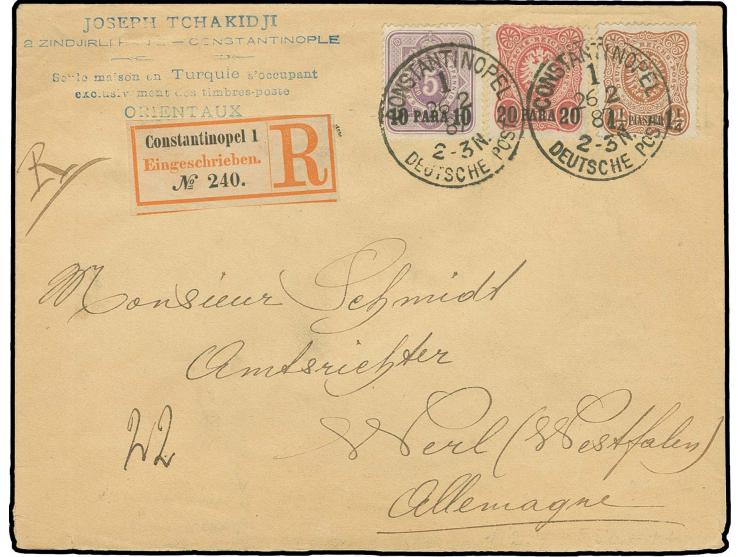 JOSEPH TCHAKIDJI
2 ZINDJIRLI — CONSTANTINOPLE
Seule maison en Turquie s'occupant
exclusivement des timbres-poste
ORIENTAUX
Constantinopel 1
Eingeschrieben.
№ 240.
R
R
5
10 PARA 10
20 PARA 20
1¼ PIASTER 1¼
CONSTANTINOPEL
1
26 2
8
2-3N.
DEUTSCHE POST
CONSTANTINOPEL
1
26 2
8
2-3N.
DEUTSCHE POST
Monsieur Schmidt
Amtsrichter
Werl (Westfalen)
Allemagne
22